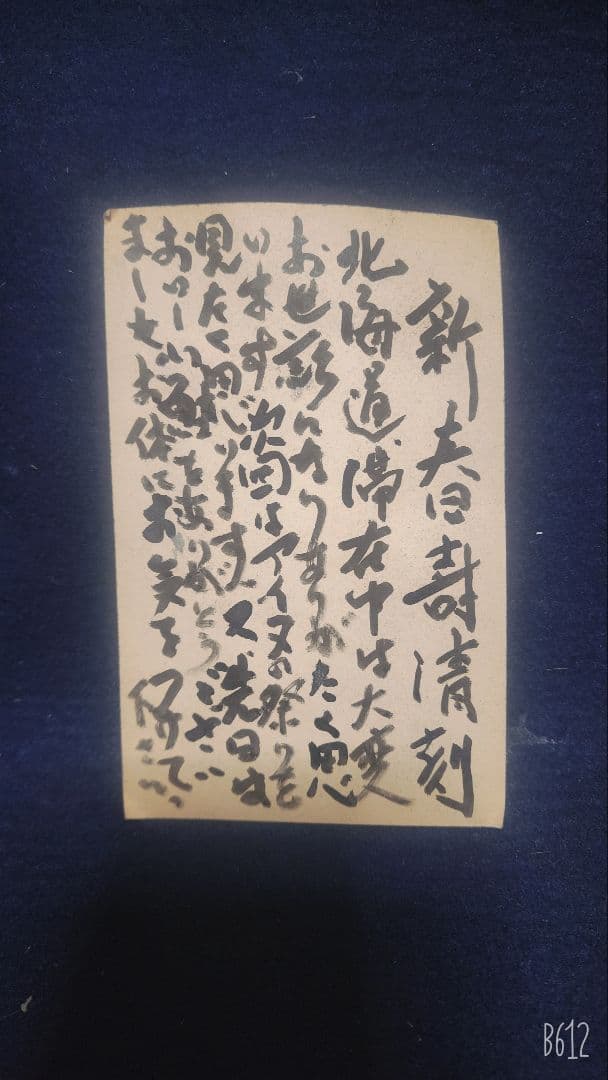 新春寿清刻
北海道滞在中は大変
お世話になりありがたく思
います 次回はアイヌの祭りを
見たく思います 又、先日は
おいしい をありがとうござい
ましたお体にお気をつけて
下さい
B612